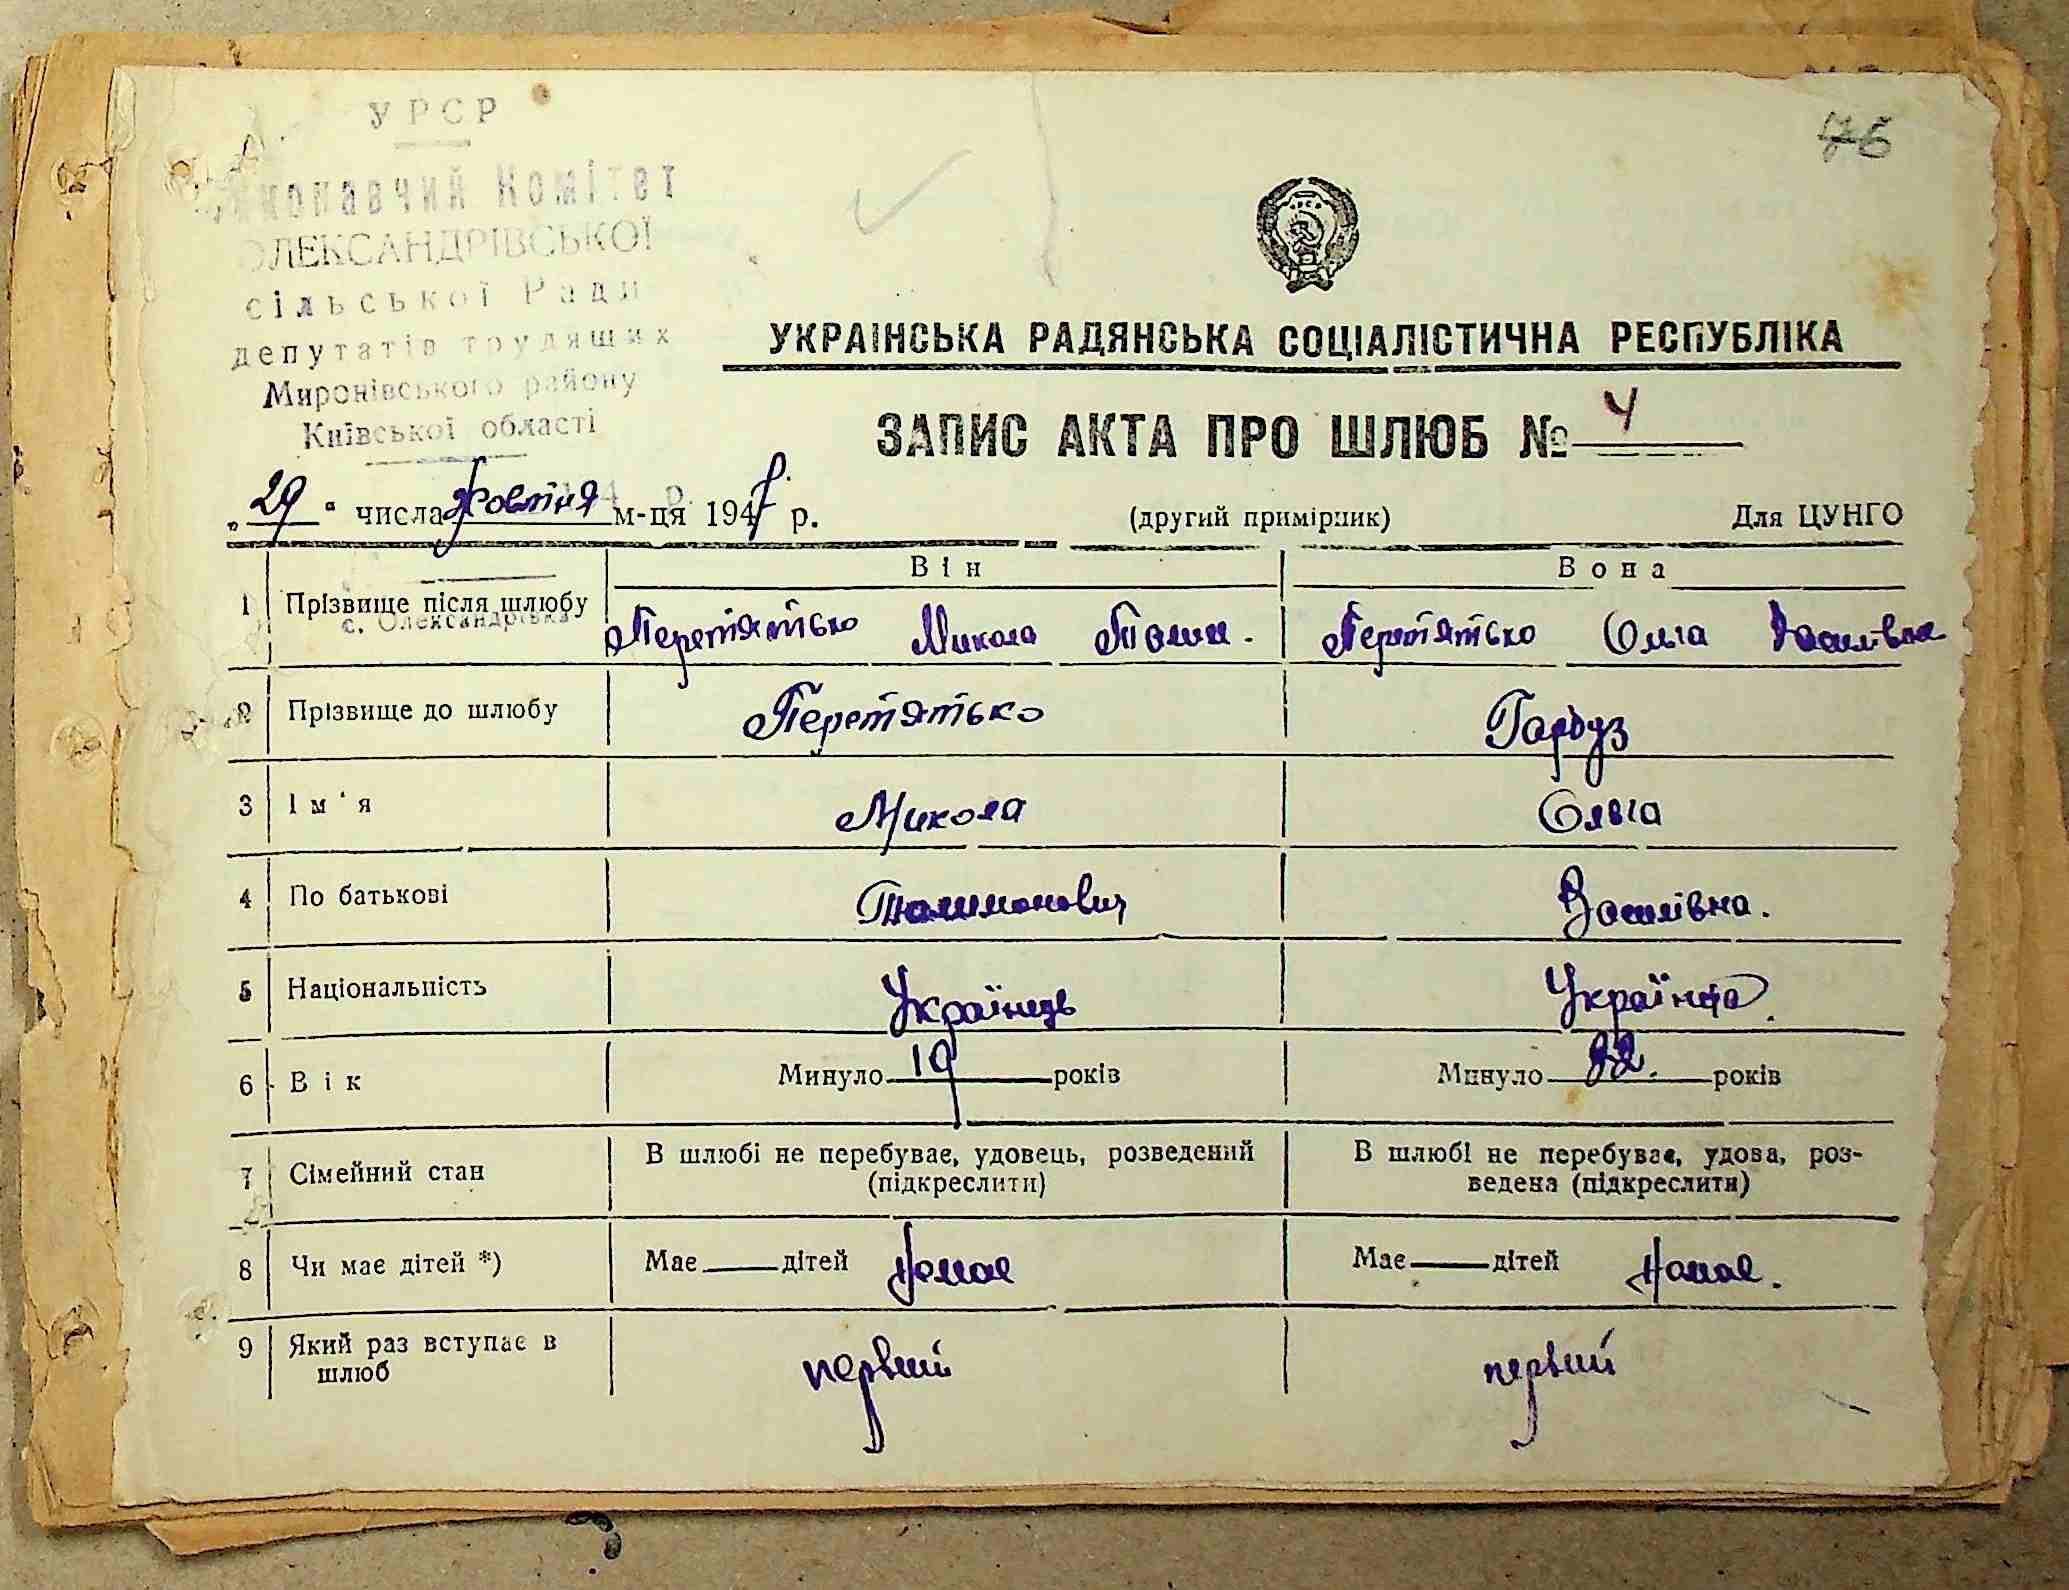 УРСР
Виконавчий Комітет
ОЛЕКСАНДРІВСЬКОЇ
сільської Ради
депутатів трудящих
Миронівського району
Київської області
76
УКРАІНСЬКА РАДЯНСЬКА СОЦІАЛІСТИЧНА РЕСПУБЛІКА
ЗАПИС АКТА ПРО ШЛЮБ № 4
„29" числа жовтня м-ця 1947 р. (другий примірник) Для ЦУНГО
с. Олександрівка
Він Вона
1 Прізвище після шлюбу Перетятько Микола Перетятько Ольга Василівна
2 Прізвище до шлюбу Перетятько Гарбуз
3 Ім'я Микола Ольга
4 По батькові Василівна.
5 Національність Українець Українка
6 Вік Минуло 19 років Минуло 22. років
7 Сімейний стан В шлюбі не перебуває, удовець, розведений В шлюбі не перебуває, удова, роз-
(підкреслити) ведена (підкреслити)
8 Чи має дітей *) Має дітей немає Має дітей немає.
9 Який раз вступає в первий первий
шлюб